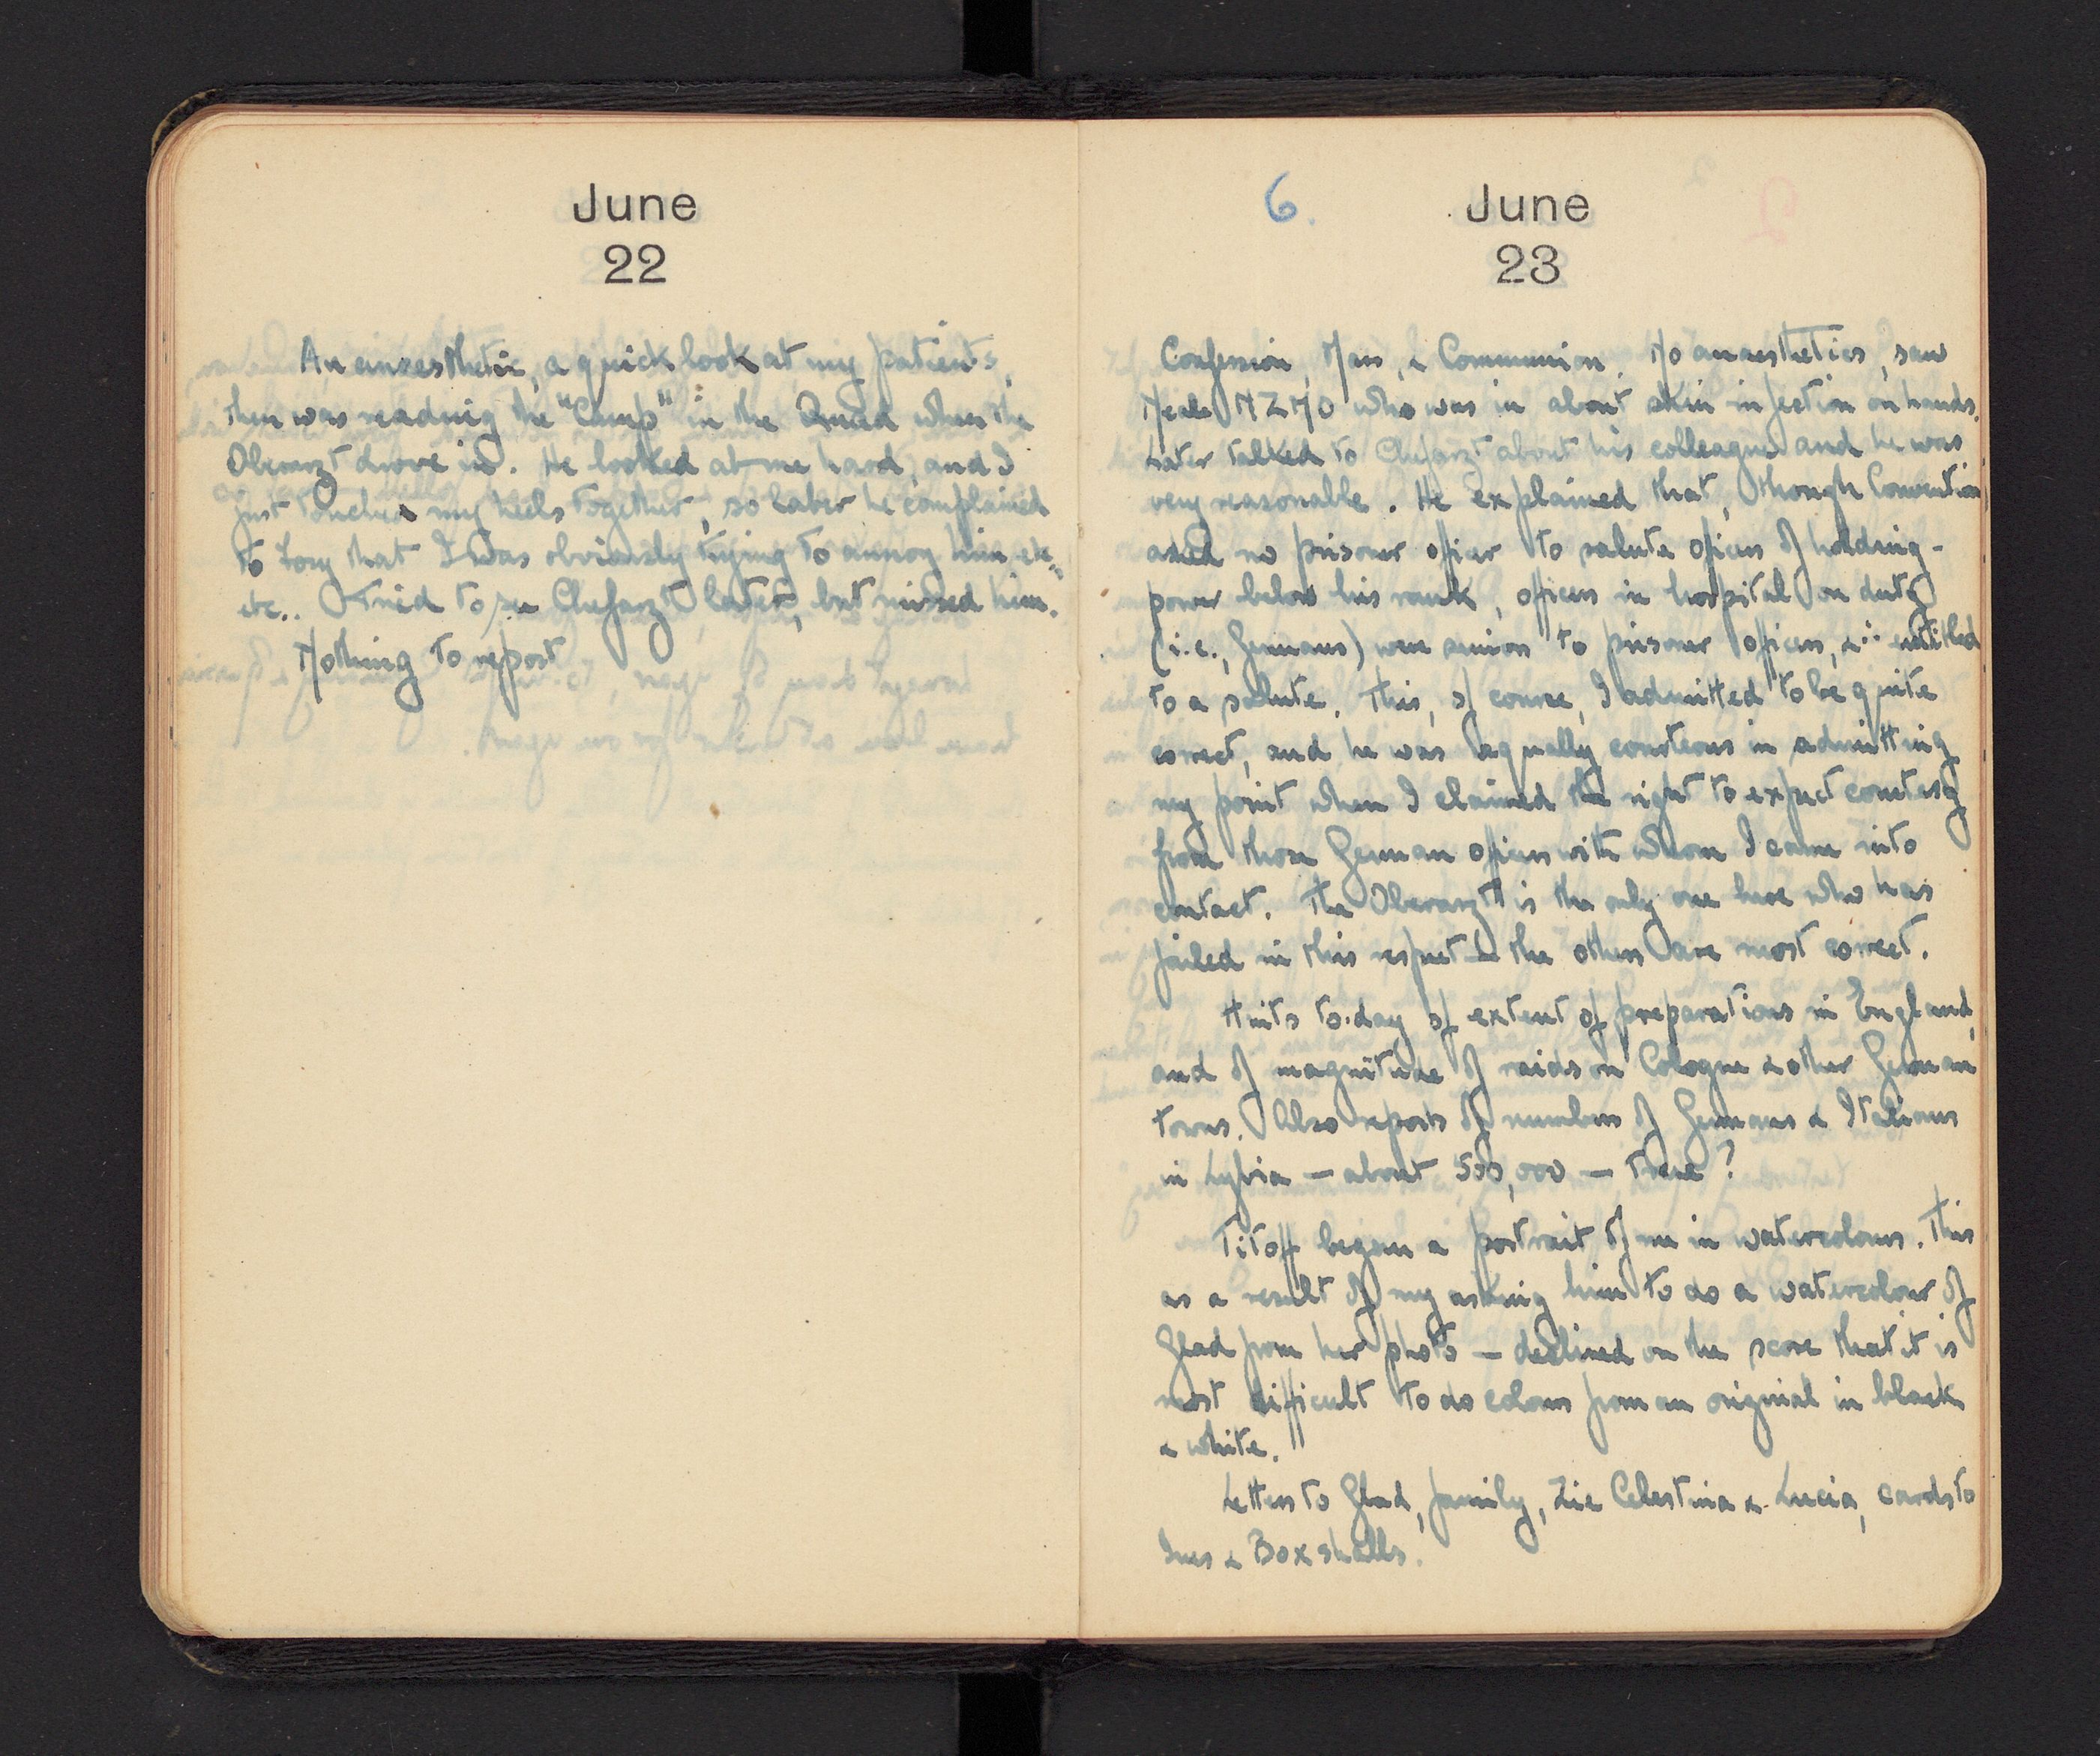 June
22
An anaesthetic, a quick look at my patients,
then was reading the "Camp" in the Quad when the
Oberarzt drove in. He looked at me hard, and I
just touched my heels together, so later he complained
to Tony that I was obviously trying to annoy him etc.,
etc.. Tried to see Chefarzt later, but missed him.
Nothing to report
6.
June
23
Confession, Mass, & Communion. No anaesthetics, saw
Neale NZMO who was in about skin infection on hands.
Later talked to Chefarzt about his colleague and he was
very reasonable. He explained that, though Convention
asked no prisoner officer to salute officers of holding-
power below his rank, officers in hospital on duty
(i.e., Germans) were senior to prisoner officers, & ∴ entitled
to a salute. This, of course, I admitted to be quite
correct, and he was equally courteous in admitting
my point when I claimed the right to expect courtesy
from those German officers with whom I came into
contact. The Oberarzt is the only one here who has
failed in this respect — the others are most correct.
Hints to-day of extent of preparations in England,
and of magnitude of raids on Cologne & other German
towns. Also reports of numbers of Germans & Italians
in Lybia — about 500,000 — True?
Titoff began a portrait of me in watercolours. This
as a result of my asking him to do a watercolour of
Glad from her photo — declined on the score that it is
most difficult to do colours from an original in black
& white.
Letters to Glad, family, Zie Celestina & Lucia, cards to
Ines & Boxshalls.